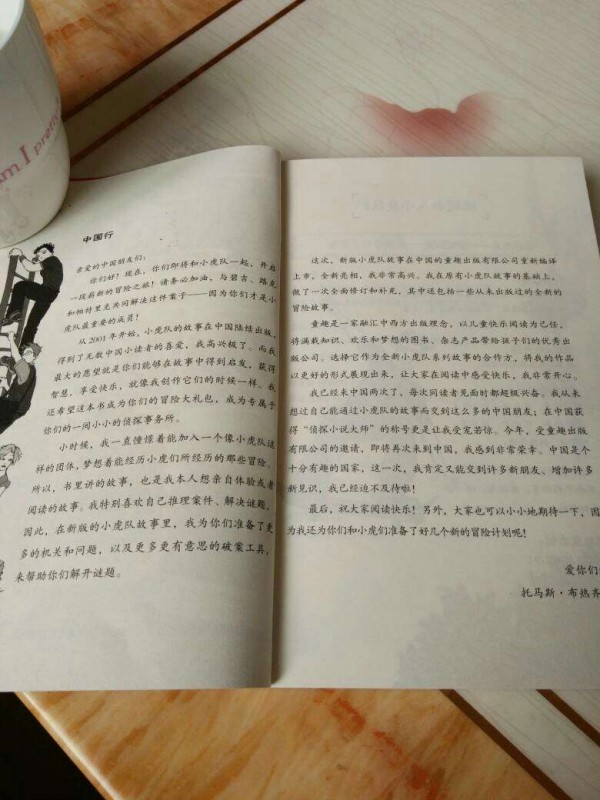 am I pretty
中国行
亲爱的中国朋友们：
你们好！现在，你们即将和小虎队一起，开启
一段崭新的冒险之旅！请务必加油，与碧吉、路克
和帕特里克共同解决这件案子——因为你们才是小
虎队最重要的成员！
从2001年开始，小虎队的故事在中国陆续出版，
得到了无数中国小读者的喜爱，我高兴极了。而我
最大的愿望就是你们能够在故事中得到启发，获得
智慧，享受快乐，就像我创作它们的时候一样。我
还希望这本书成为你们的冒险大礼包，成为专属于
你们的一间小小的侦探事务所。
小时候，我一直憧憬着能加入一个像小虎队这
样的团体，梦想着能经历小虎们所经历的那些冒险。
所以，书里讲的故事，也是我本人想亲自体验或者
阅读的故事。我特别喜欢自己推理案件、解决谜题。
因此，在新版的小虎队故事里，我为你们准备了更
多的机关和问题，以及更多更有意思的破案工具，
来帮助你们解开谜题。
这次，新版小虎队故事在中国的童趣出版有限公司重新编译
上市，全新亮相，我非常高兴。我在原有小虎队故事的基础上，
做了一次全面修订和补充，其中还包括一些从未出版过的全新的
冒险故事。
童趣是一家融汇中西方出版理念，以儿童快乐阅读为己任，
将满载知识、欢乐和梦想的图书、杂志产品带给孩子们的优秀出
版公司。选择它作为全新小虎队系列故事的合作方，将我的作品
以更好的形式展现出来，让大家在阅读中感受快乐，我非常开心。
我已经来中国两次了，每次同读者见面时都超级兴奋。我从未
想过自己能通过小虎队的故事而交到这么多的中国朋友；在中国获
得“侦探小说大师”的称号更是让我受宠若惊。今年，受童趣出版
有限公司的邀请，即将再次来到中国，我感到非常荣幸。中国是个
十分有趣的国家，这一次，我肯定又能交到许多新朋友、增加许多
新见识，我已经迫不及待啦！
最后，祝大家阅读快乐！另外，大家也可以小小地期待一下，因
为我还为你们和小虎们准备了好几个新的冒险计划呢！
爱你们
托马斯·布热齐